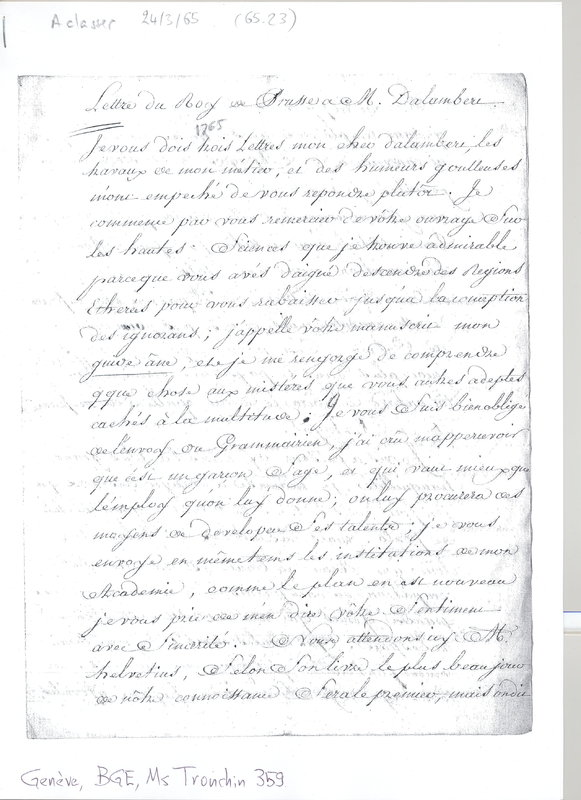 A classer 24/3/65 (65.23)
Lettre du Roy de Prusse a M. Dalambert
1765
Je vous dois trois Lettres mon cher dalambert, les
travaux de mon métier, et des humeurs goutteuses
m'ont empeché de vous repondre plutôt. Je
commence par vous remercier de vôtre ouvrage Sur
les hautes Sciences que je trouve admirable
parceque vous avés daigné descendre des Regions
Etherés pour vous rabaisser jusqu'a la conception
des ignorans; j'appelle vôtre manuscrit mon
guide âne, et je me rengorge de comprendre
qque chose aux mistéres que vous autres adeptes
cachés à la multitude. Je vous Suis bien obligé
de l'envoy du Grammairien, j'ai crû m'appercevoir
que c'est un garçon Sage, et qui vaut mieux que
l'employ qu'on luy donne; on luy procurera des
moyens de developer Ses talents; je vous
envoye en mêmetems les institutions de mon
Academie, comme le plan en est nouveau
je vous prie de m'en dire vôtre Sentiment
avec Sincerité. Nous attendons icy M.
helvetius, Selon Son livre le plus beau jour
de nôtre connoissance Sera le premier, mais on dit
Genève, BGE, Ms Tronchin 359